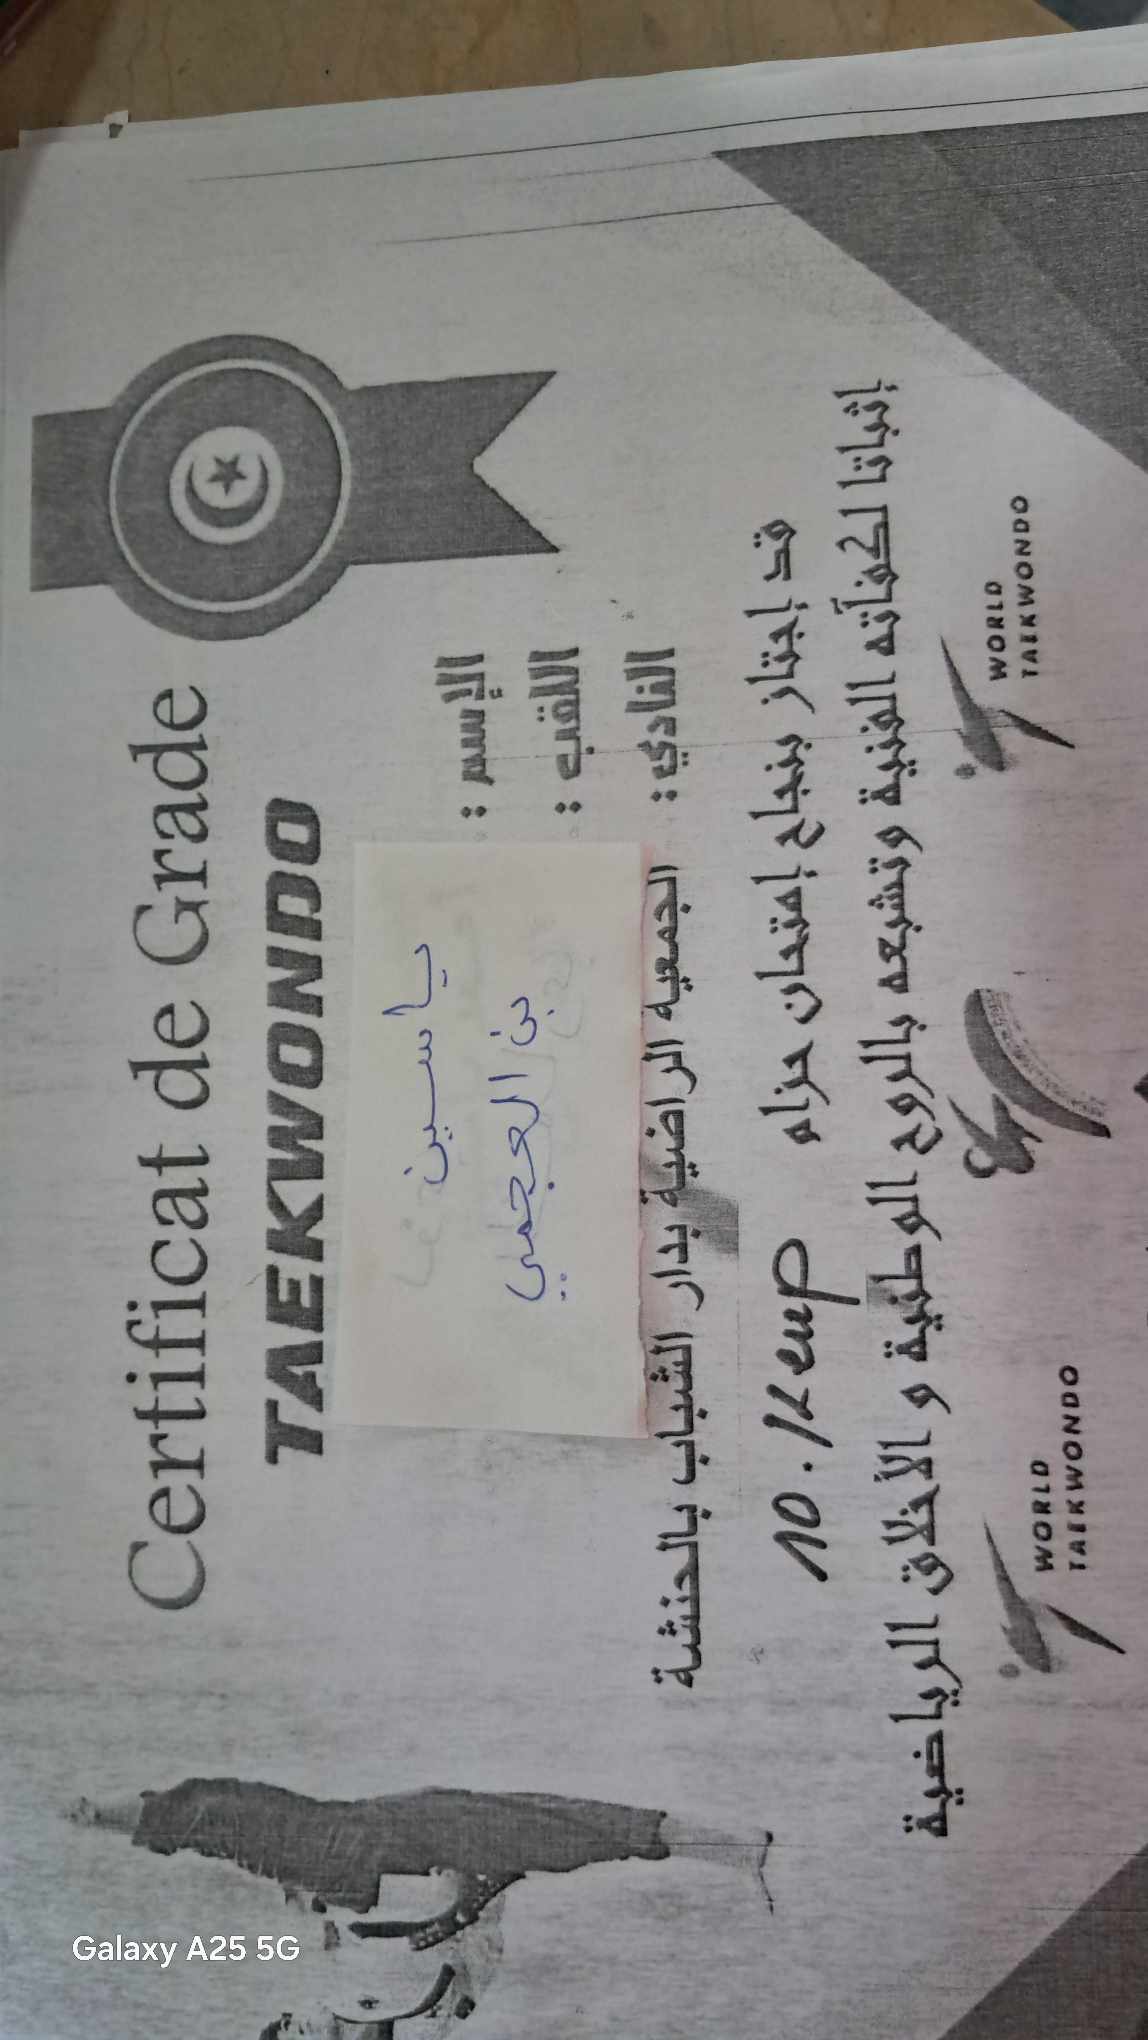 Certificat de Grade
TAEKWONDO
الإسم :
ياسين
اللقب :
بن العجمي
النادي : الجمعيه الراضية بدار الشباب بالحنشة
قد إجتاز بنجاح إمتحان حزام 10.Keup
إثباتا لكفآته الفنية وتشبعه بالروح الوطنية و الأخلاق الرياضية
WORLD
TAEKWONDO
WORLD
TAEKWONDO
Galaxy A25 5G